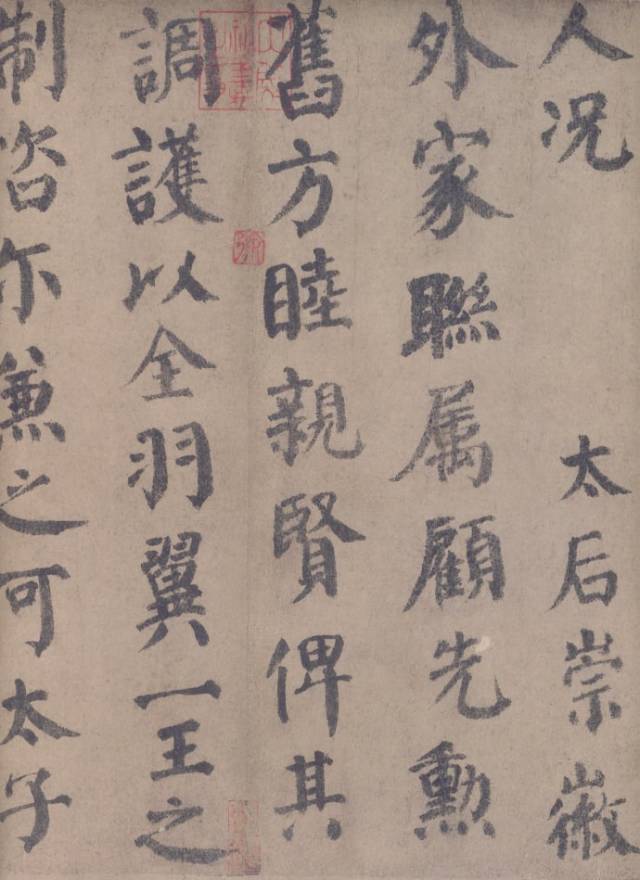 人况 太后崇徽
外家聯属顧先勲
舊方睦親賢俾其
調護以全羽翼一王之
制咨尔兼之可太子